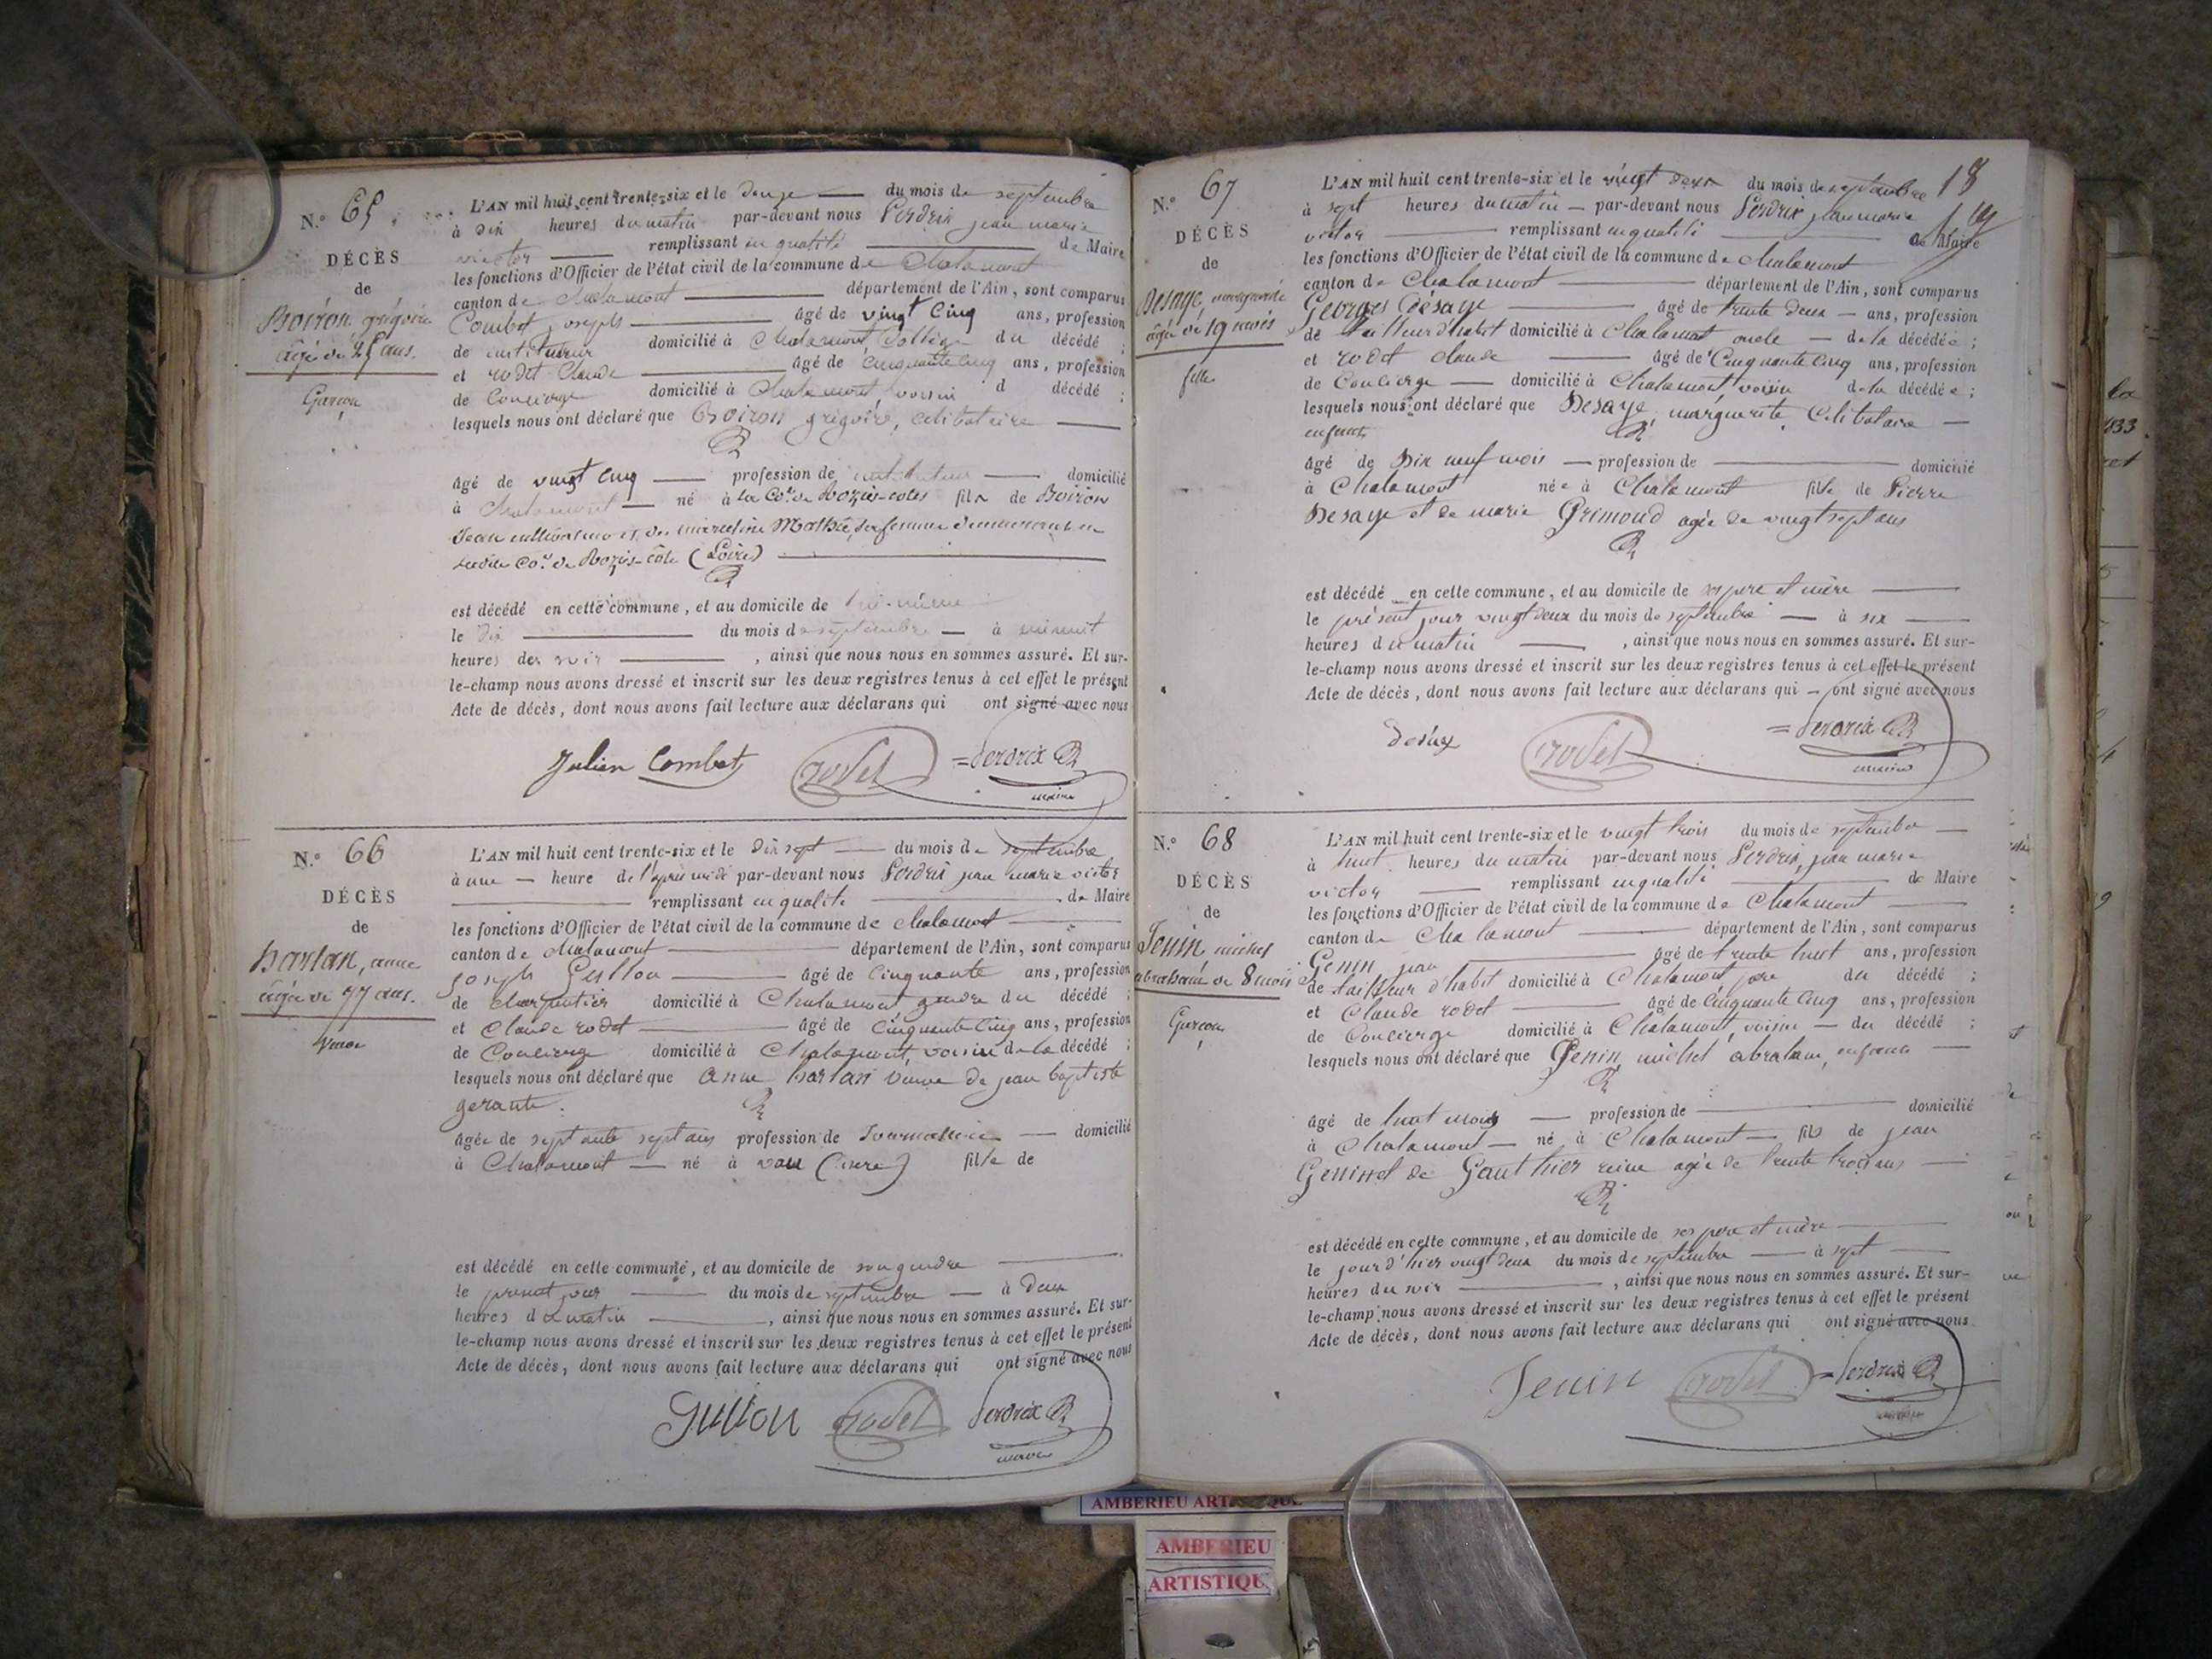 N.° 65
DÉCÈS
de
Boiron grégoire
âgé de 25 ans.
Garçon
L'AN mil huit cent trente-six et le douze du mois de septembre
à dix heures du matin par-devant nous Perdrix jean marie
victor remplissant en qualité de Maire
les fonctions d'Officier de l'état civil de la commune de Chalamont
canton de Chalamont département de l'Ain, sont comparus
Combet joseph âgé de vingt cinq ans, profession
de instituteur domicilié à Chalamont Collègue du décédé ;
et rodet Claude âgé de cinquante cinq ans, profession
de Concierge domicilié à Chalamont, voisin d décédé ;
lesquels nous ont déclaré que Boiron grégoire, celibataire
âgé de vingt cinq profession de instituteur domicilié
à Chalamont né à la Co.ne de fils de Boiron
Jean cultivateur et de Mathie, sa femme demeurant en
(Loire)
est décédé en cette commune, et au domicile de lui-même
le dix du mois de septembre à minuit
heures du soir , ainsi que nous nous en sommes assuré. Et sur-
le-champ nous avons dressé et inscrit sur les deux registres tenus à cet effet le présent
Acte de décès, dont nous avons fait lecture aux déclarans qui ont signé avec nous
Julien Combet rodet Perdrix
maire
N.° 66
DÉCÈS
de
barlan, anne
âgée de 77 ans.
Veuve
L'AN mil huit cent trente-six et le dix sept du mois de septembre
à une heure de l'après midi par-devant nous Perdrix jean marie victor
remplissant en qualité de Maire
les fonctions d'Officier de l'état civil de la commune de Chalamont
canton de Chalamont département de l'Ain, sont comparus
joseph Guillon âgé de cinquante ans, profession
de charpentier domicilié à Chalamont gendre du décédé ;
et Claude rodet âgé de cinquante cinq ans, profession
de Concierge domicilié à Chalamont, voisin de la décédé ;
lesquels nous ont déclaré que anne barlan veuve de jean baptiste
gerante.
âgée de septante sept ans profession de Journalière domicilié
à Chalamont né à (isere) fille de
est décédé en cette commune, et au domicile de son gendre
le présent jour du mois de septembre à deux
heures du matin , ainsi que nous nous en sommes assuré. Et sur-
le-champ nous avons dressé et inscrit sur les deux registres tenus à cet effet le présent
Acte de décès, dont nous avons fait lecture aux déclarans qui ont signé avec nous
Guillon rodet Perdrix
maire
18
N.° 67
DÉCÈS
de
Desaye, marguerite
âgée de 19 mois
fille
L'AN mil huit cent trente-six et le vingt deux du mois de septembre
à sept heures du matin par-devant nous Perdrix jean marie
victor remplissant en qualité de Maire
les fonctions d'Officier de l'état civil de la commune de Chalamont
canton de Chalamont département de l'Ain, sont comparus
Georges Désaye âgé de trente deux ans, profession
de tailleur d'habit domicilié à Chalamont oncle de la décédée ;
et rodet claude âgé de Cinquante Cinq ans, profession
de Concierge domicilié à Chalamont, voisin de la décédée ;
lesquels nous ont déclaré que Desaye marguerite Celibataire
enfant
âgé de Dix neuf mois profession de domicilié
à Chalamont née à Chalamont fille de Pierre
Desaye et de marie Grimoud agée de vingt sept ans
est décédé en cette commune, et au domicile de ses pere et mère
le présent jour vingt deux du mois de septembre à six
heures du matin , ainsi que nous nous en sommes assuré. Et sur-
le-champ nous avons dressé et inscrit sur les deux registres tenus à cet effet le présent
Acte de décès, dont nous avons fait lecture aux déclarans qui ont signé avec nous
rodet Perdrix
maire
N.° 68
DÉCÈS
de
Jenin michel
abraham de 8 mois
Garçon
L'AN mil huit cent trente-six et le vingt trois du mois de septembre
à huit heures du matin par-devant nous Perdrix, jean marie
victor remplissant en qualité de Maire
les fonctions d'Officier de l'état civil de la commune de Chalamont
canton de Chalamont département de l'Ain, sont comparus
Genin jean âgé de trente huit ans, profession
de tailleur d'habit domicilié à Chalamont père du décédé ;
et Claude rodet âgé de Cinquante Cinq ans, profession
de Concierge domicilié à Chalamont, voisin du décédé ;
lesquels nous ont déclaré que Genin, michel abraham, enfant
âgé de huit mois profession de domicilié
à Chalamont né à Chalamont fils de jean
Genin et de Gauthier reine agée de trente trois ans
est décédé en cette commune, et au domicile de ses père et mère
le jour d'hier vingt deux du mois de septembre à sept
heures du soir , ainsi que nous nous en sommes assuré. Et sur-
le-champ nous avons dressé et inscrit sur les deux registres tenus à cet effet le présent
Acte de décès, dont nous avons fait lecture aux déclarans qui ont signé avec nous
Jenin rodet Perdrix
AMBERIEU
AMBERIEU
ARTISTIQU